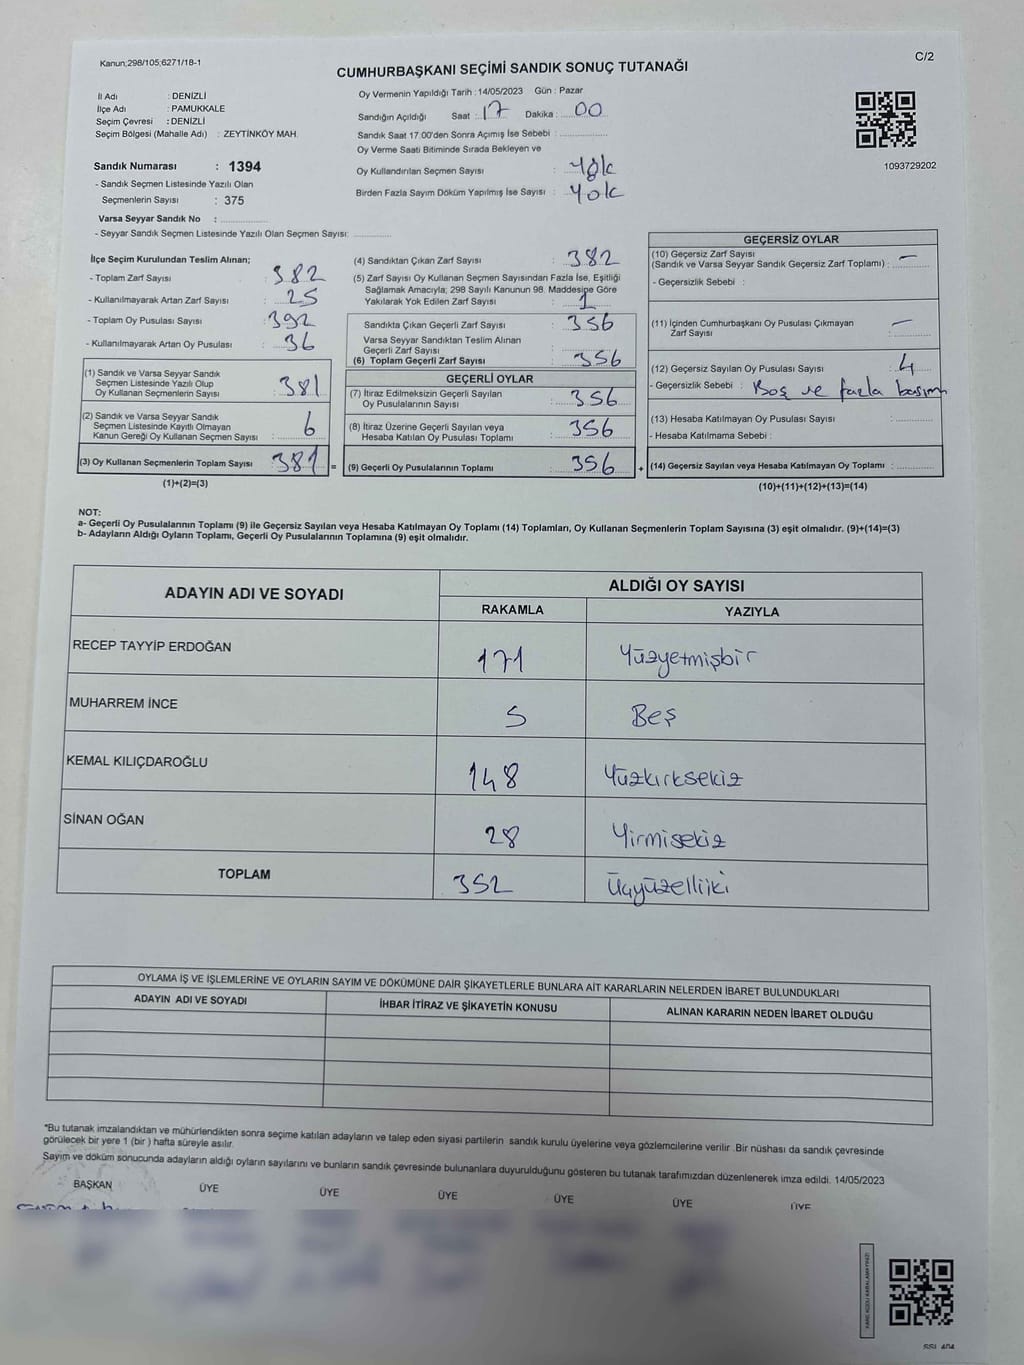 Kanun;298/105;6271/18-1
C/2
CUMHURBAŞKANI SEÇİMİ SANDIK SONUÇ TUTANAĞI
İl Adı : DENİZLİ
İlçe Adı : PAMUKKALE
Seçim Çevresi : DENİZLİ
Seçim Bölgesi (Mahalle Adı) : ZEYTİNKÖY MAH.
Sandık Numarası : 1394
- Sandık Seçmen Listesinde Yazılı Olan
Seçmenlerin Sayısı : 375
Varsa Seyyar Sandık No : ...............
- Seyyar Sandık Seçmen Listesinde Yazılı Olan Seçmen Sayısı: ............
Oy Vermenin Yapıldığı Tarih : 14/05/2023 Gün : Pazar
Sandığın Açıldığı Saat : 17 Dakika : 00
Sandık Saat 17.00'den Sonra Açımış İse Sebebi : ...............
Oy Verme Saati Bitiminde Sırada Bekleyen ve
Oy Kullandırılan Seçmen Sayısı : Yok
Birden Fazla Sayım Döküm Yapılmış İse Sayısı : Yok
1093729202
İlçe Seçim Kurulundan Teslim Alınan;
- Toplam Zarf Sayısı : 382
- Kullanılmayarak Artan Zarf Sayısı : 25
- Toplam Oy Pusulası Sayısı : 392
- Kullanılmayarak Artan Oy Pusulası : 36
(1) Sandık ve Varsa Seyyar Sandık
Seçmen Listesinde Yazılı Olup
Oy Kullanan Seçmenlerin Sayısı : 381
(2) Sandık ve Varsa Seyyar Sandık
Seçmen Listesinde Kayıtlı Olmayan
Kanun Gereği Oy Kullanan Seçmen Sayısı : 6
(3) Oy Kullanan Seçmenlerin Toplam Sayısı : 381 =
(1)+(2)=(3)
(4) Sandıktan Çıkan Zarf Sayısı : 382
(5) Zarf Sayısı Oy Kullanan Seçmen Sayısından Fazla İse, Eşitliği
Sağlamak Amacıyla; 298 Sayılı Kanunun 98. Maddesine Göre
Yakılarak Yok Edilen Zarf Sayısı : 1
Sandıkta Çıkan Geçerli Zarf Sayısı : 356
Varsa Seyyar Sandıktan Teslim Alınan
Geçerli Zarf Sayısı :
(6) Toplam Geçerli Zarf Sayısı : 356
GEÇERLİ OYLAR
(7) İtiraz Edilmeksizin Geçerli Sayılan
Oy Pusulalarının Sayısı : 356
(8) İtiraz Üzerine Geçerli Sayılan veya
Hesaba Katılan Oy Pusulası Toplamı : 356
(9) Geçerli Oy Pusulalarının Toplamı : 356 +
GEÇERSİZ OYLAR
(10) Geçersiz Zarf Sayısı
(Sandık ve Varsa Seyyar Sandık Geçersiz Zarf Toplamı) : —
- Geçersizlik Sebebi :
(11) İçinden Cumhurbaşkanı Oy Pusulası Çıkmayan
Zarf Sayısı : —
(12) Geçersiz Sayılan Oy Pusulası Sayısı : 4
- Geçersizlik Sebebi : Boş ve fazla basım
(13) Hesaba Katılmayan Oy Pusulası Sayısı :
- Hesaba Katılmama Sebebi :
(14) Geçersiz Sayılan veya Hesaba Katılmayan Oy Toplamı : ............
(10)+(11)+(12)+(13)=(14)
NOT:
a- Geçerli Oy Pusulalarının Toplamı (9) ile Geçersiz Sayılan veya Hesaba Katılmayan Oy Toplamı (14) Toplamları, Oy Kullanan Seçmenlerin Toplam Sayısına (3) eşit olmalıdır. (9)+(14)=(3)
b- Adayların Aldığı Oyların Toplamı, Geçerli Oy Pusulalarının Toplamına (9) eşit olmalıdır.
ADAYIN ADI VE SOYADI ALDIĞI OY SAYISI
RAKAMLA YAZIYLA
RECEP TAYYİP ERDOĞAN 171 Yüzyetmişbir
MUHARREM İNCE 5 Beş
KEMAL KILIÇDAROĞLU 148 Yüzkırksekiz
SİNAN OĞAN 28 Yirmisekiz
TOPLAM 352 Üçyüzelliiki
OYLAMA İŞ VE İŞLEMLERİNE VE OYLARIN SAYIM VE DÖKÜMÜNE DAİR ŞİKAYETLERLE BUNLARA AİT KARARLARIN NELERDEN İBARET BULUNDUKLARI
ADAYIN ADI VE SOYADI İHBAR İTİRAZ VE ŞİKAYETİN KONUSU ALINAN KARARIN NEDEN İBARET OLDUĞU
*Bu tutanak imzalandıktan ve mühürlendikten sonra seçime katılan adayların ve talep eden siyasi partilerin sandık kurulu üyelerine veya gözlemcilerine verilir .Bir nüshası da sandık çevresinde
görülecek bir yere 1 (bir ) hafta süreyle asılır.
Sayım ve döküm sonucunda adayların aldığı oyların sayılarını ve bunların sandık çevresinde bulunanlara duyurulduğunu gösteren bu tutanak tarafımızdan düzenlenerek imza edildi. 14/05/2023
BAŞKAN ÜYE ÜYE ÜYE ÜYE ÜYE ÜYE